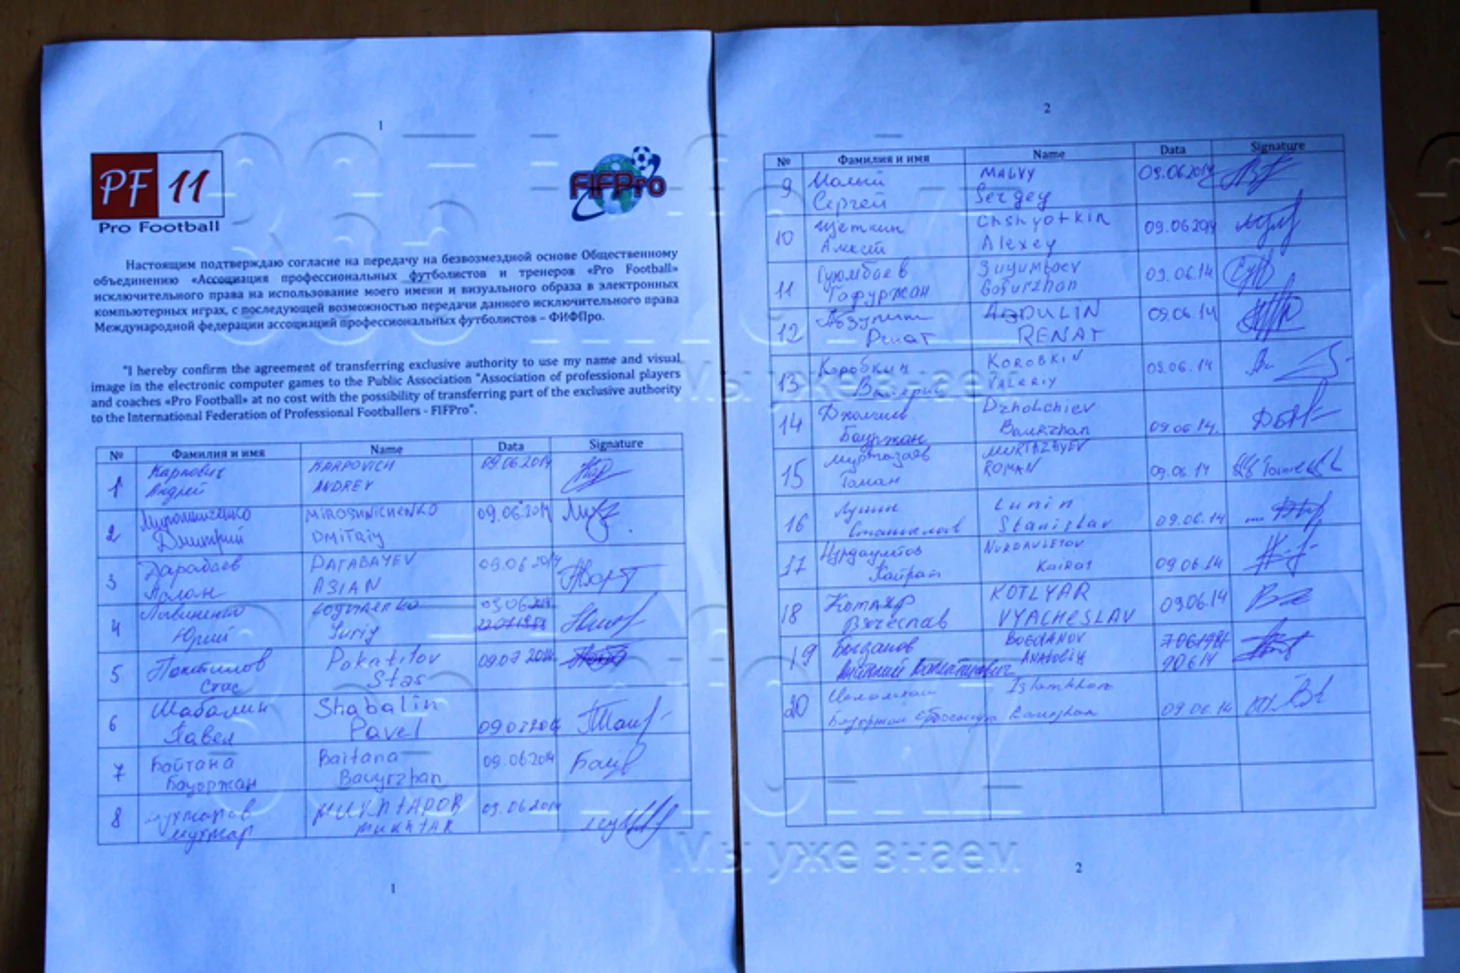 1
PF 11
Pro Football
FIFPro
Настоящим подтверждаю согласие на передачу на безвозмездной основе Общественному
объединению «Ассоциация профессиональных футболистов и тренеров «Pro Football»
исключительного права на использование моего имени и визуального образа в электронных
компьютерных играх, с последующей возможностью передачи данного исключительного права
Международной федерации ассоциаций профессиональных футболистов – ФИФПро.
"I hereby confirm the agreement of transferring exclusive authority to use my name and visual
image in the electronic computer games to the Public Association "Association of professional players
and coaches «Pro Football» at no cost with the possibility of transferring part of the exclusive authority
to the International Federation of Professional Footballers - FIFPro".
№ Фамилия и имя Name Data Signature
1 Карпович KARPOVICH 09.06.2014
Андрей ANDREY
2 Мирошниченко MIROSHNICHENKO 09.06.2014
Дмитрий DMITRIY
3 Дарабаев DARABAYEV 09.06.2014
Аслан ASLAN
4 Логвиненко 09.06.2014
Юрий Yuriy
5 Покатилов Pokatilov 09.07.2014
Стас Stas
6 Шабалин Shabalin
Павел Pavel 09.07.2014
7 Байтана Baitana 09.06.2014
Бауржан Bauyrzhan
8 Мухтаров MUKHTAROV 09.06.2014
Мухтар MUKHTAR
1
2
№ Фамилия и имя Name Data Signature
9 Малый MALYY 09.06.2014
Сергей Sergey
10 Щеткин Chshyotkin 09.06.2014
Алексей Alexey
11 Суюмбаев Suyumbaev 09.06.14
Гафуржан Gafurzhan
12 Абдулин ABDULIN 09.06.14
Ренат RENAT
13 Коробкин KOROBKIN 09.06.14
Валерий VALERIY
14 Джолчиев Dzholchiev
Бауржан Baurzhan 09.06.14.
15 Муртазаев MURTAZAYEV
Роман ROMAN 09.06.14
16 Лунин Lunin
Станислав Stanislav 09.06.14
17 Нурдаулетов NURDAULETOV
Кайрат Kairat 09.06.14
18 Котляр KOTLYAR 09.06.14
Вячеслав VYACHESLAV
19 Богданов BOGDANOV
Анатолий ANATOLIY
20 Исламхан Islamkhan
Бауржан Baurzhan 09.06.14
2
Мы уже знаем
Мы уже знаем